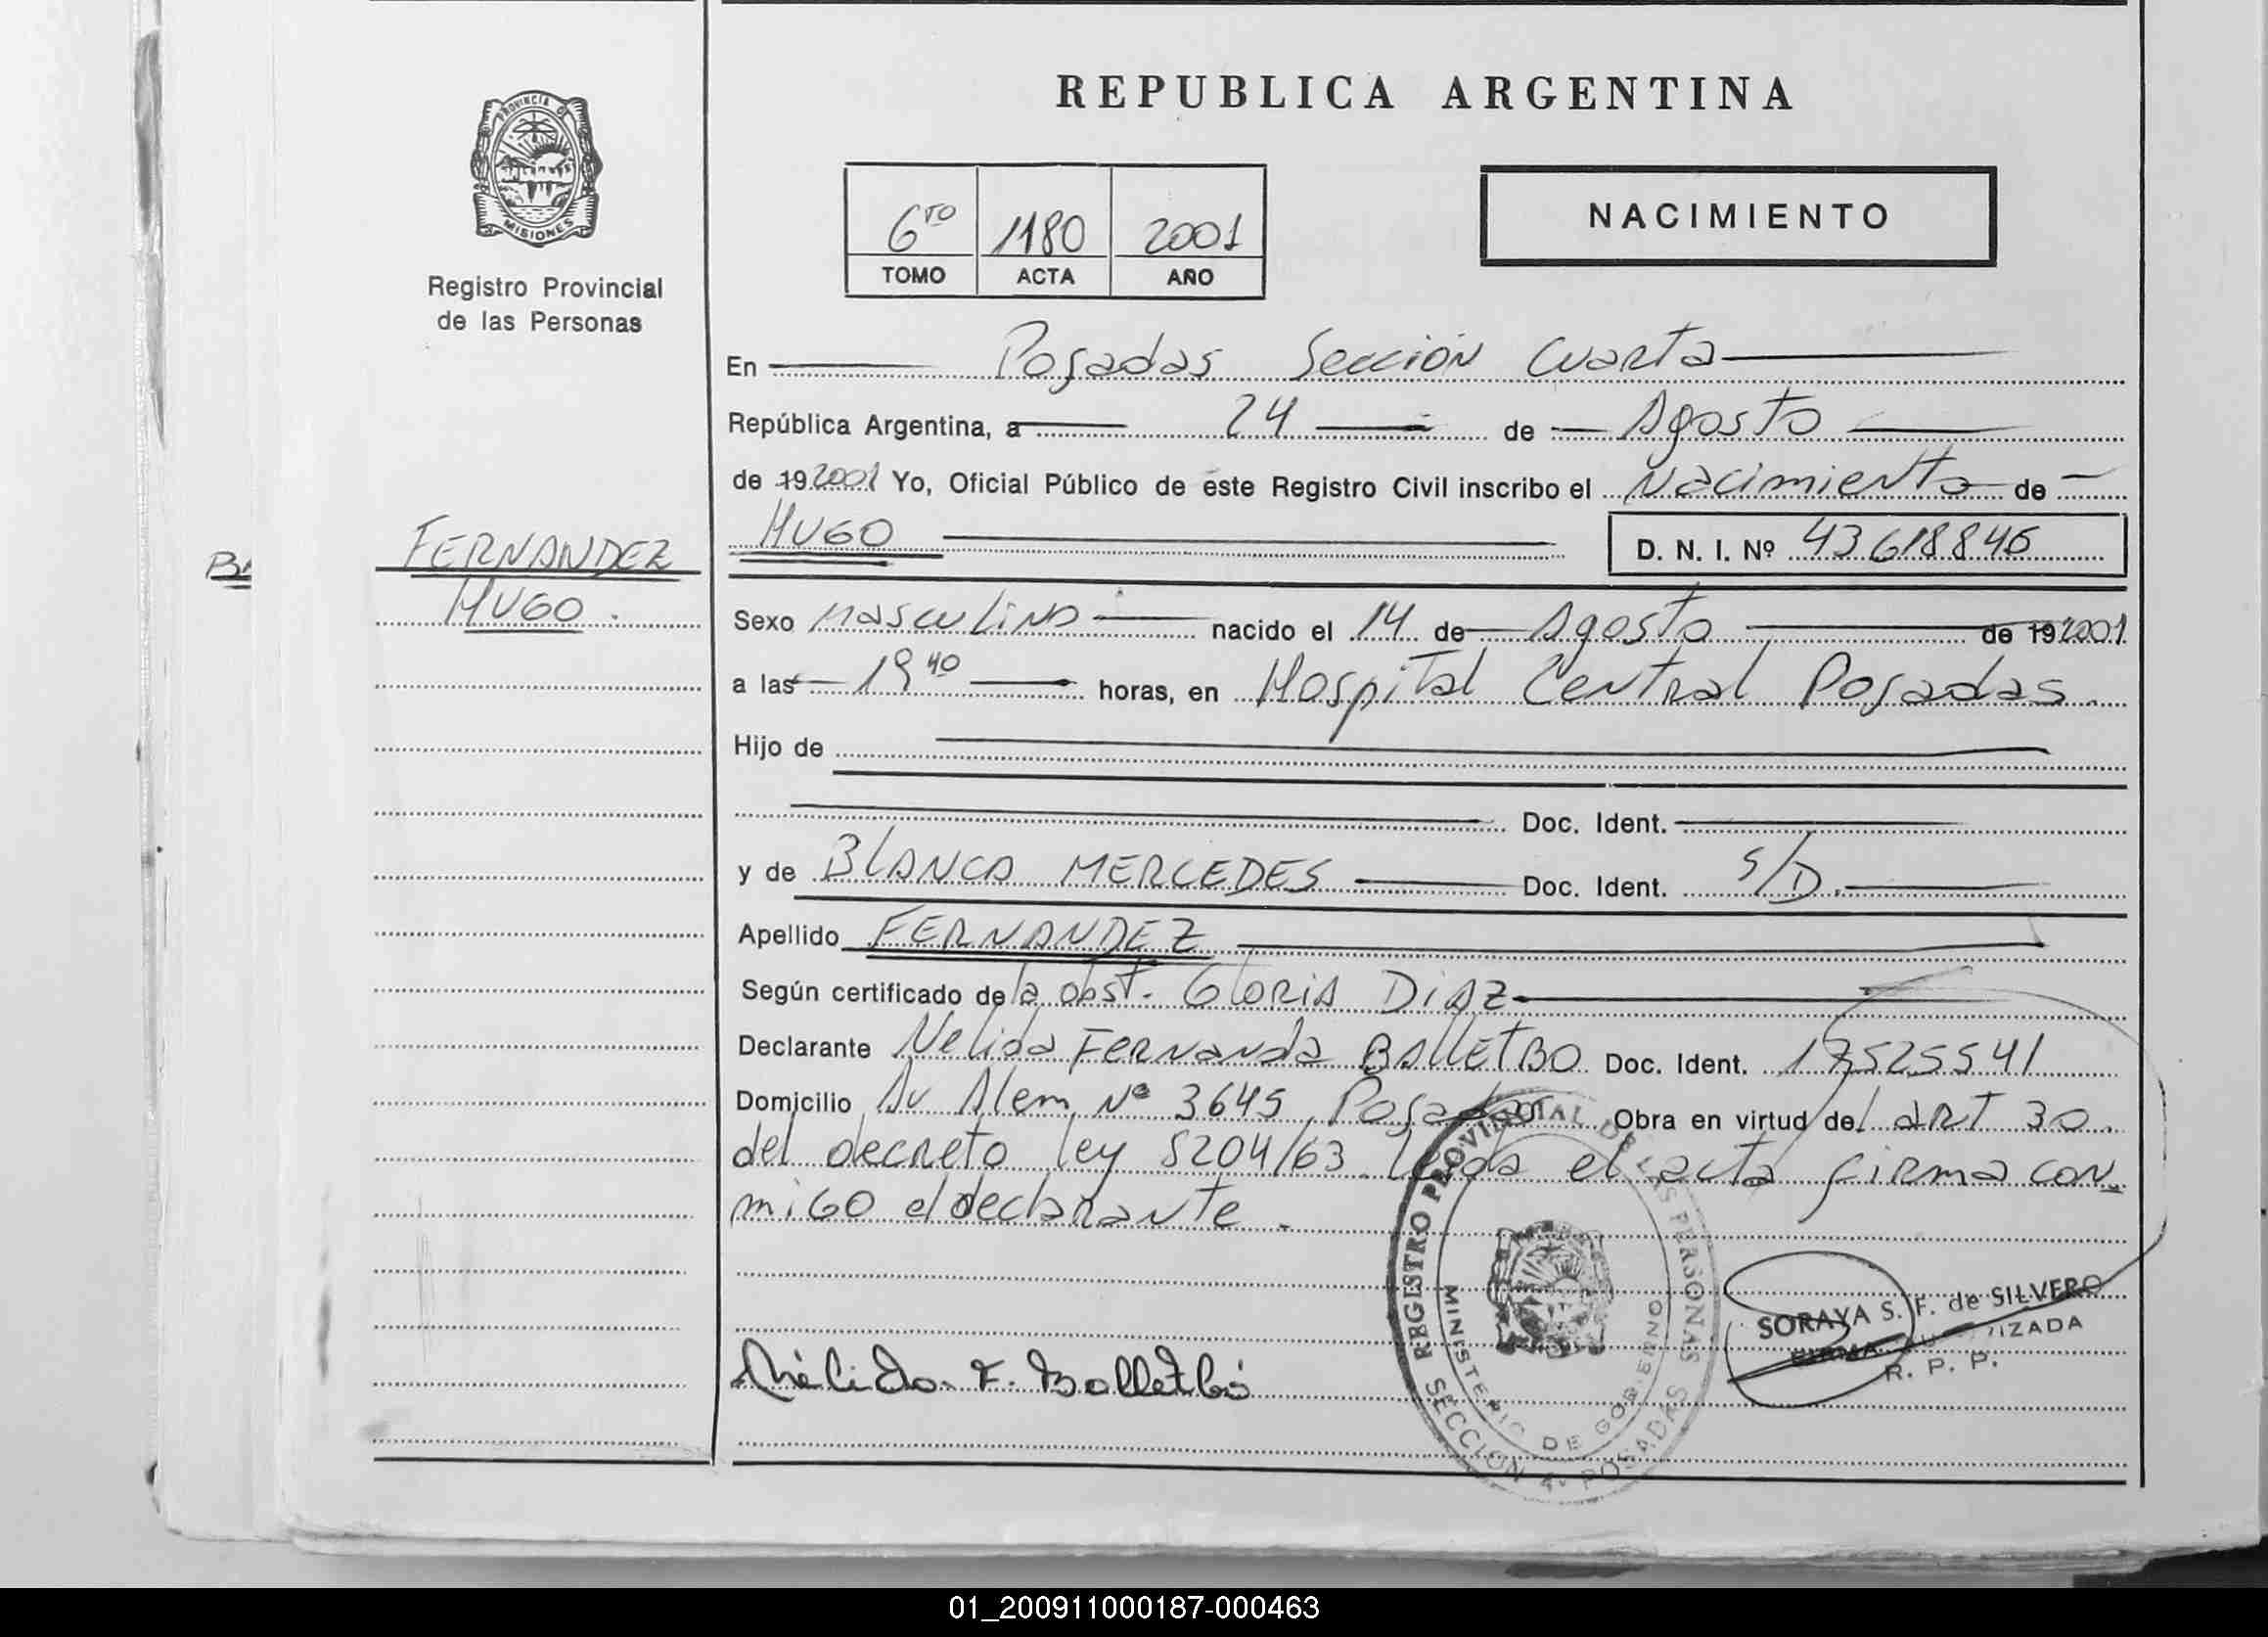 REPUBLICA ARGENTINA
PROVINCIA D MISIONES
Registro Provincial
de las Personas
6TO 1180 2001
TOMO ACTA AÑO
NACIMIENTO
En Posadas Sección Cuarta
República Argentina, a 24 de Agosto
de 19 2001 Yo, Oficial Público de este Registro Civil inscribo el Nacimiento de
HUGO D. N. I. Nº 43618846
FERNANDEZ
HUGO.
Sexo Masculino nacido el 14 de Agosto de 19 2001
a las 19 40 horas, en Hospital Central Posadas.
Hijo de
Doc. Ident.
y de BLANCA MERCEDES Doc. Ident. S/D.
Apellido FERNANDEZ
Según certificado de la obst. GLORIA DIAZ
Declarante Nelida Fernanda BALLETBO Doc. Ident. 17525541
Domicilio Av Alem Nº 3645, Posadas Obra en virtud del ART 30.
del decreto ley 8204/63. Leida el acta firma con
migo el declarante.
REGISTRO PROVINCIAL DE LAS PERSONAS
MINISTERIO DE GOBIERNO
SECCION 4ª POSADAS
SORAYA S. F. de SILVERO
FIRMA AUTORIZADA
R. P. P.
Nélida F. Balletbó
01_200911000187-000463